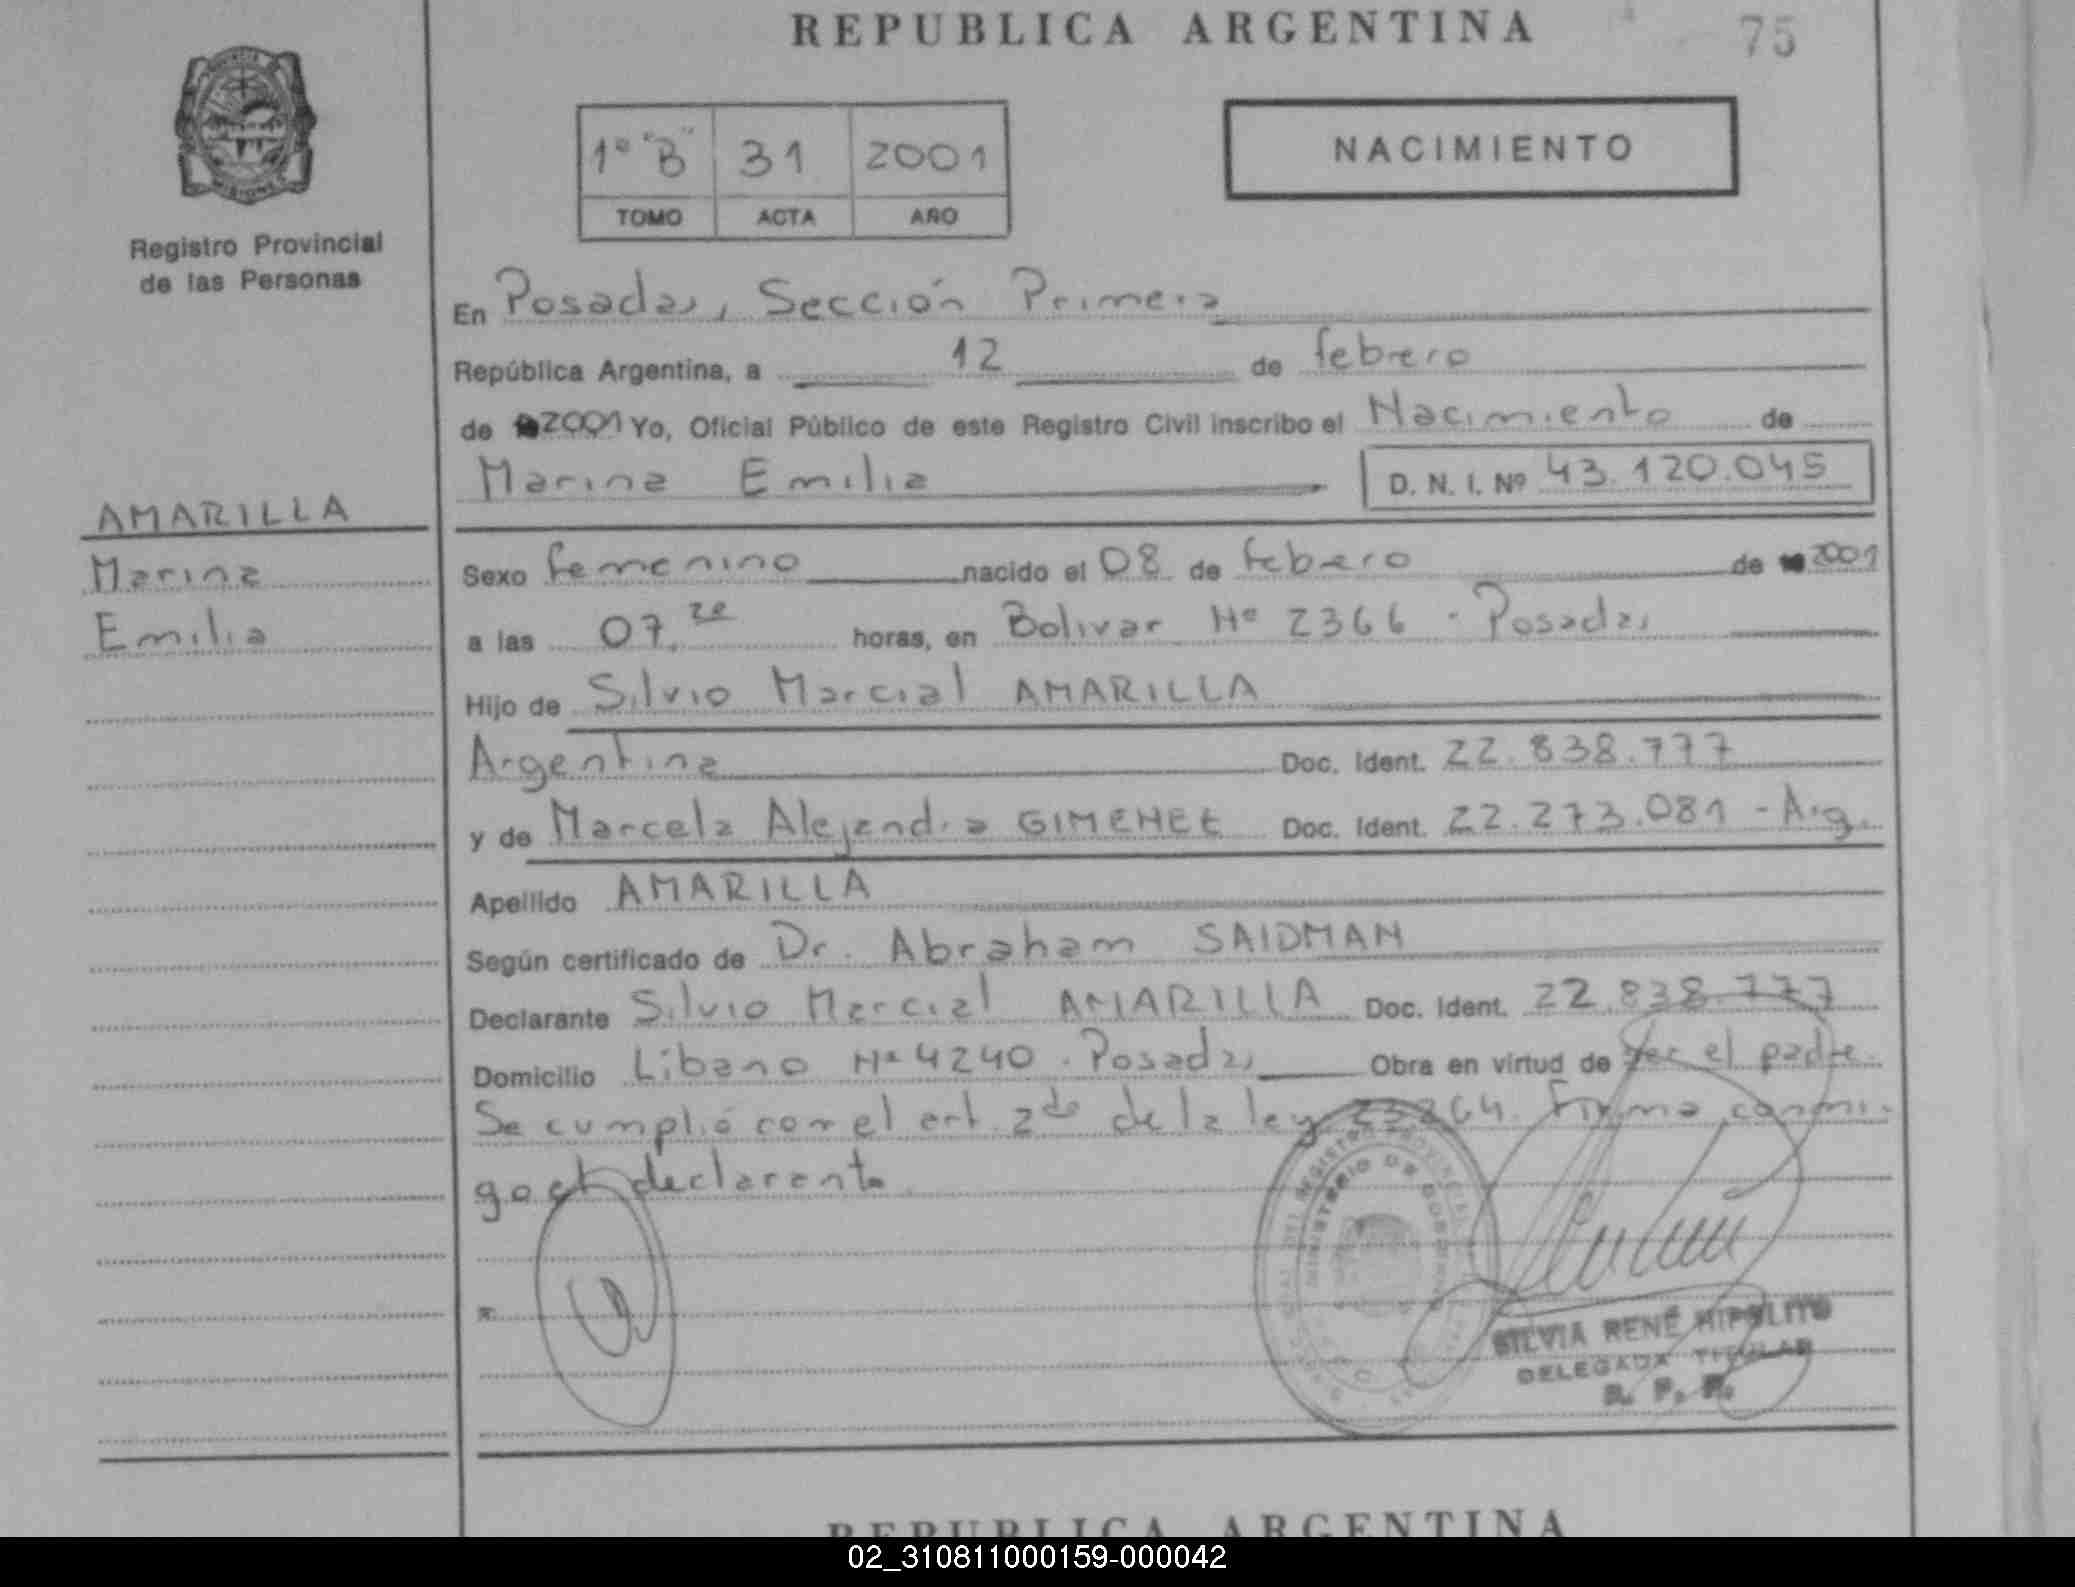 REPUBLICA ARGENTINA
75
PROVINCIA
MISIONES
Registro Provincial
de las Personas
1º "B" 31 2001
TOMO ACTA AÑO
NACIMIENTO
En Posadas, Sección Primera
República Argentina, a 12 de febrero
de 2001 Yo, Oficial Público de este Registro Civil inscribo el Nacimiento de
Marina Emilia D. N. I. Nº 43.120.045
AMARILLA
Marina
Emilia
Sexo femenino nacido el 08 de febrero de 2001
a las 07. horas, en Bolivar Nº 2366 - Posadas
Hijo de Silvio Marcial AMARILLA
Argentina Doc. Ident. 22.838.777
y de Marcela Alejandra GIMENEZ Doc. Ident. 22.273.081 - Arg.
Apellido AMARILLA
Según certificado de Dr. Abraham SAIDMAN
Declarante Silvio Marcial AMARILLA Doc. Ident. 22.838.777
Domicilio Líbano Nº 4240 - Posadas Obra en virtud de ser el padre.
Se cumplió con el art. 2do de la ley 23264. Firma conmi-
go el declarante.
REGISTRO PROVINCIAL
MINISTERIO DE GOBIERNO
SILVIA RENÉ HIPOLITO
DELEGADA TITULAR
R. P. P.
REPUBLICA ARGENTINA
02_310811000159-000042